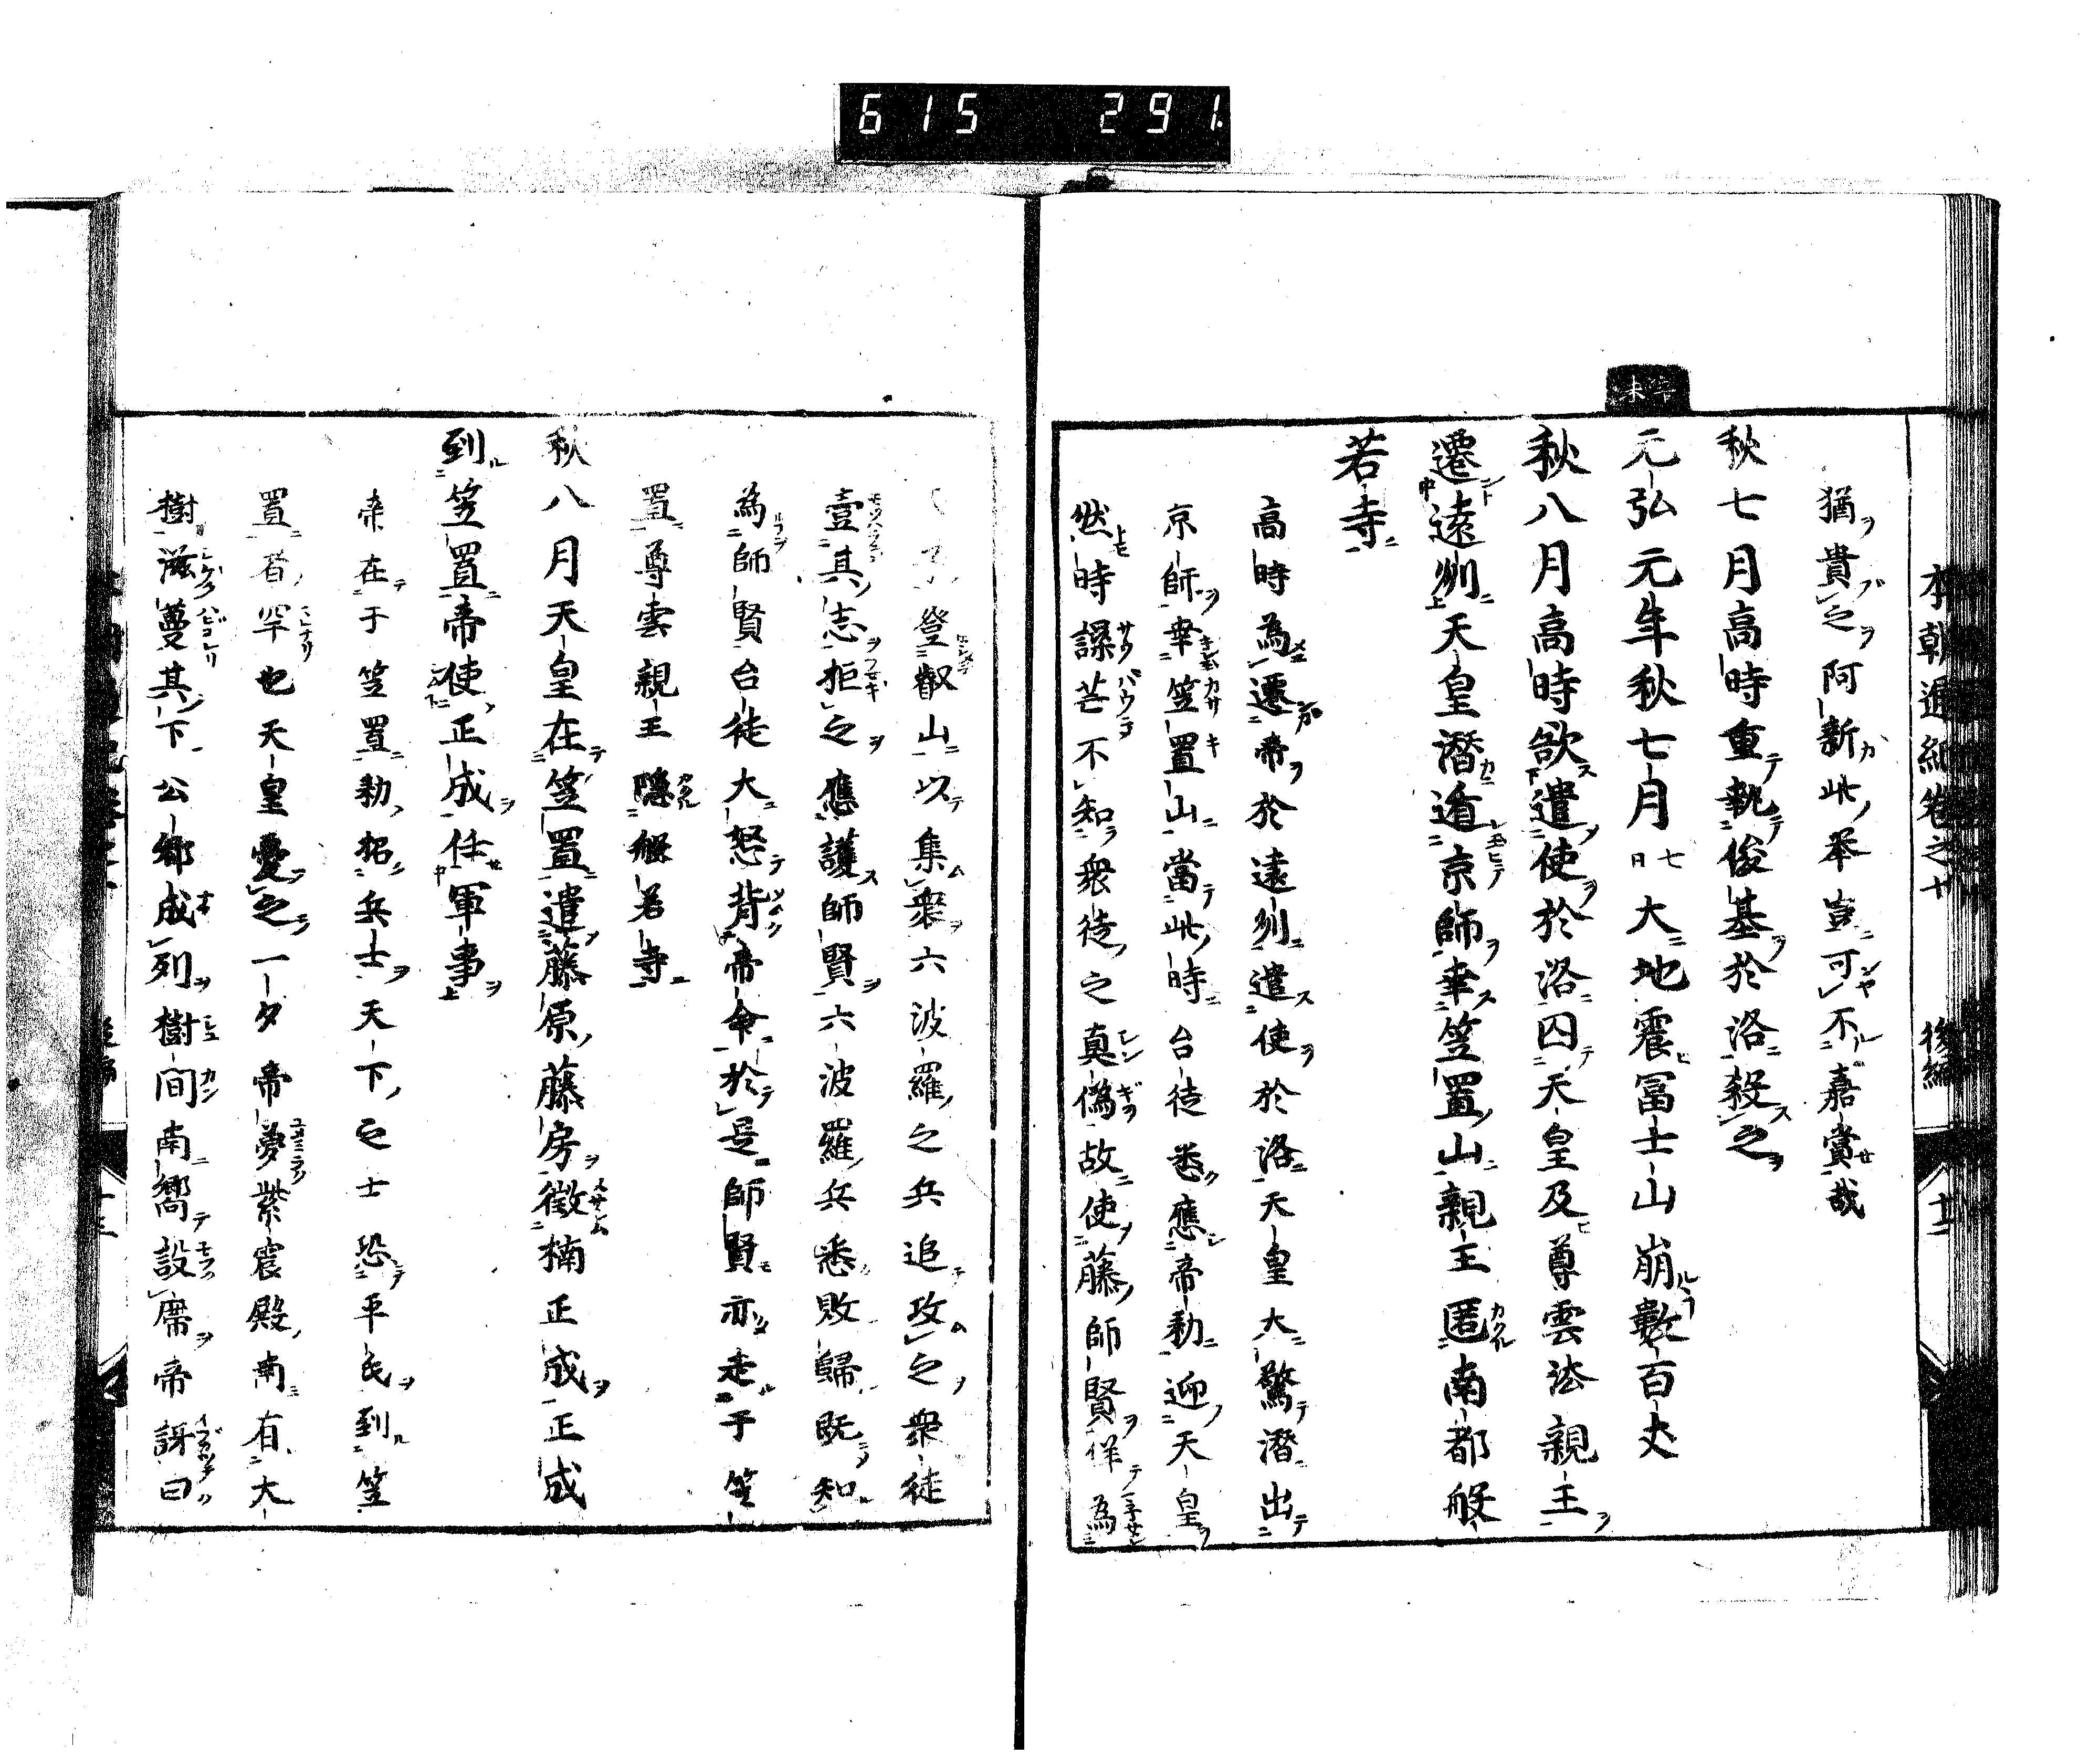 615 291.
本朝通紀卷之十 後編 十二
猶貴之阿新此舉豈可不嘉賞哉
秋七月高時重執俊基於洛殺之
辛未
元弘元年秋七月七日大地震冨士山崩數百丈
秋八月高時欲遣使於洛囚天皇及尊雲法親王
遷遠刕天皇潛遁京師幸笠置山親王匿南都般
若寺
高時為遷帝於遠刕遣使於洛天皇大驚潛出
京師幸笠置山當此時台徒悉應帝勅迎天皇
然時譟芒不知衆徒之真僞故使藤師賢佯為
登叡山以集衆六波羅之兵追攻之衆徒
壹其志拒之應護師賢六波羅兵悉敗歸既知
為師賢台徒大怒背帝命於是師賢亦走于笠
置尊雲親王隱般若寺
秋八月天皇在笠置遣藤原藤房徵楠正成正成
到笠置帝使正成任軍事
帝在于笠置勅招兵士天下之士恐平氏到笠
置者罕也天皇憂之一夕帝夢紫宸殿南有大
樹滋蔓其下公卿成列樹間南嚮設席帝訝曰